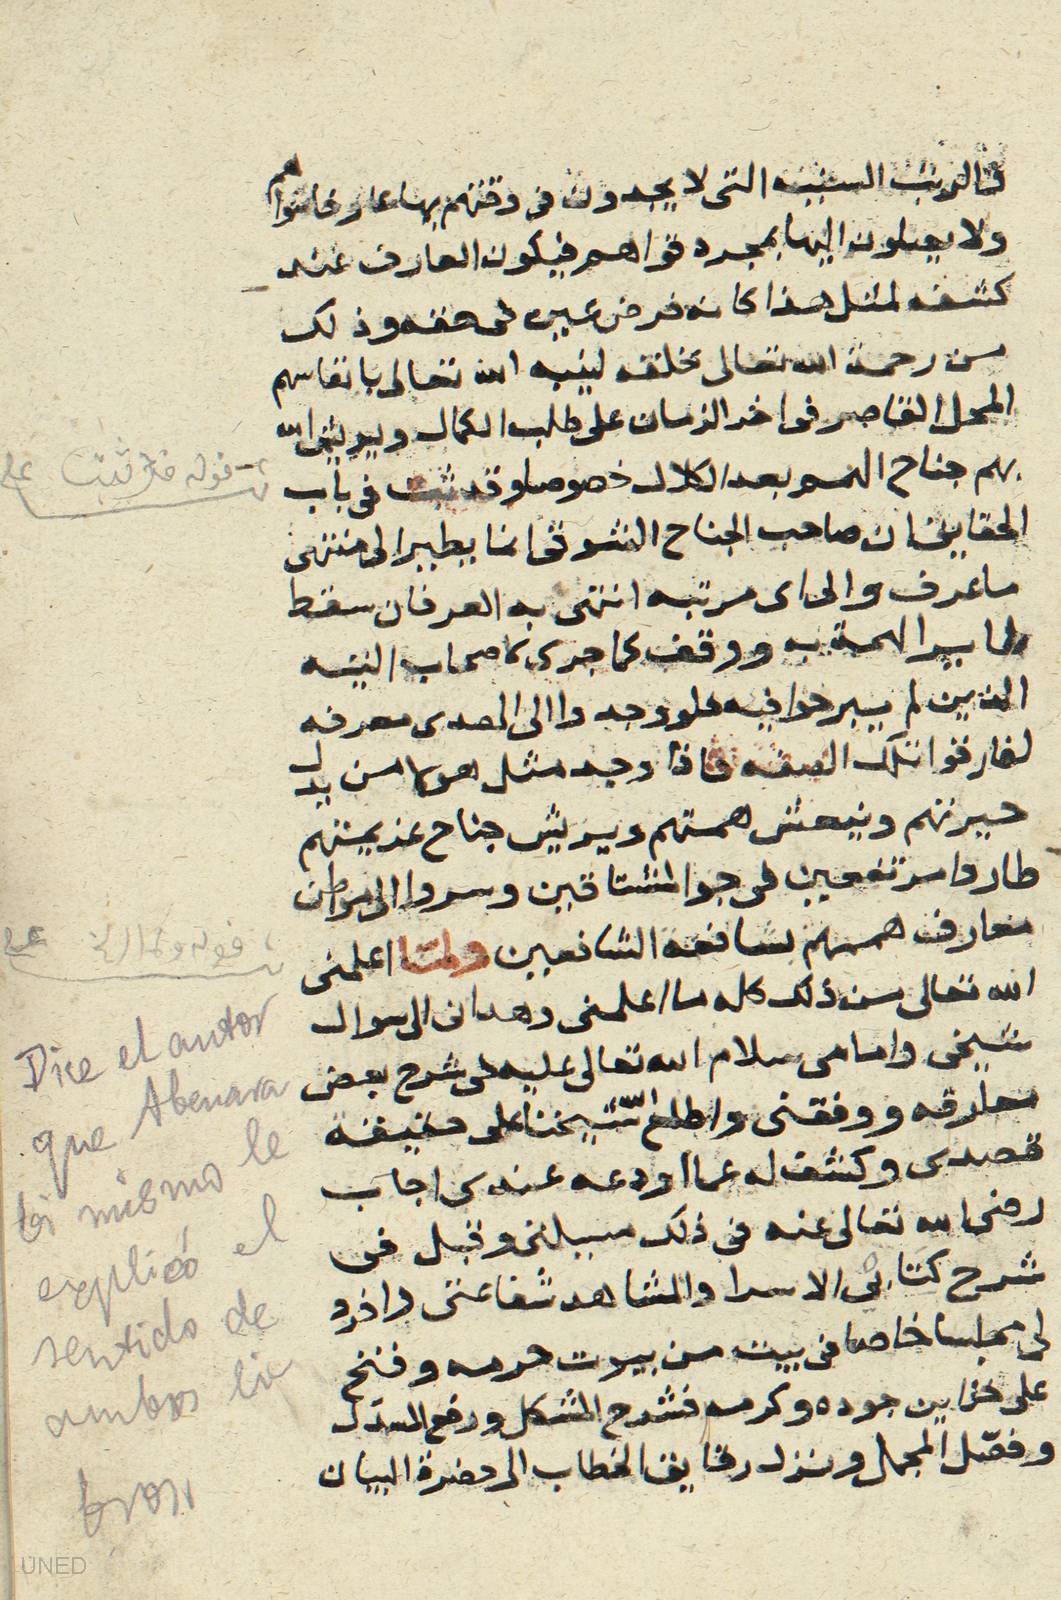 في الرتب السنيه التي لا يجدون في وقتهم بها عارفا سواهم
ولا يصلون اليها بمجرد قواهم فيكون العارف عند
كشفه لمثل هذا كانه فرض عين في حقه وذلك
من رحمة الله تعالى بخلقه لينبه الله تعالى بانفاسهم
المحل القاصر في اخر الزمان على طلب الكمال ويريش الله
بهم جناح النسر بعد الكلال خصوصا وقد ثبت في باب
الحقايق ان صاحب الجناح الشوقى انما يطير الى منتهى
ما عرف والى اى مرتبه انتهى به العرفان سقط
طاير الهمة به ووقف كما جرى لاصحاب التيه
الذين لم يبرحوا فيه فلو وجدوا الى المدى معرفه
لفارقوا تلك الصفه فاذا وجد مثل هولا من يدل
حيرتهم وينعش همتهم ويريش جناح عزيمتهم
طاروا مرتفعين في جو المشتاقين وسروا الى مواطن
معارف هممهم بشافعه الشافعين ولمّا اعلمنى
الله تعالى من ذلك كله ما اعلمنى وهدانى الى سوال
شيخى وامامى سلام الله تعالى عليه في شرح بعض
معارفه ووفقنى واطلع الله شيخنا على حقيقة
قصدى وكشف له عما اودعه عندى اجاب
رضى الله تعالى عنه في ذلك مسيلتى وقبل في
شرح كتابى الاسرا والمشاهد شفاعتى وافرد
لى مجلسا خاصا في بيت من بيوت حرمه وفتح
على خزاين جوده وكرمه فشرح المشكل ورفع المسدل
وفصّل المجمل ونزل رقايق الخطاب الى حضرة البيان
قوله وقد ثبت
قوله ولما الخ
Dice el autor
que Abenara
bi mismo le
explicó el
sentido de
ambos li
bros
UNED